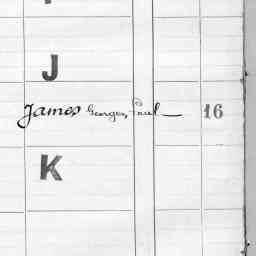 J
James, Georges, Paul — 16
K